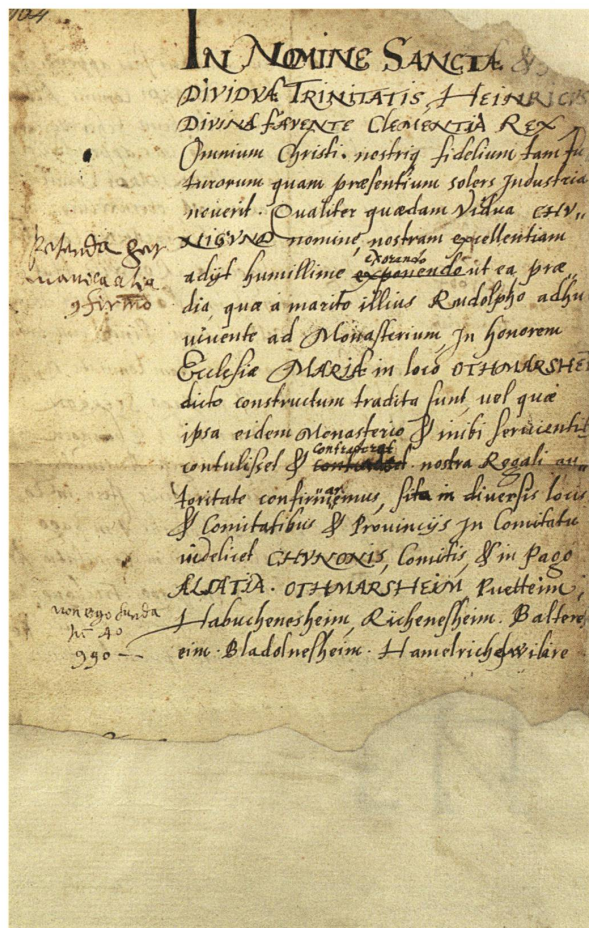 164
IN NOMINE SANCTÆ &
DIVIDVÆ TRINITATIS, HEINRICVS
DIVINA FAVENTE CLEMENTIA REX
Omnium Christi. nostriq fidelium tam fu
turorum quam præsentium solers Industria
neverit. Qualiter quædam Vidua CHV„
NIGVND nomine, nostram excellentiam
exorando
adijt humillime exponendo ut ea præ„
dia, quæ a marito illius Rudolpho adhu
vivente ad Monasterium, In honorem
Ecclesiæ MARIÆ in loco OTHMARSHEI
dicto constructum tradita sunt, vel quæ
ipsa eidem Monasterio & inibi servientib
contulisset & nostra Regali au„
toritate confirmemus, sita in diversis locis
& Comitatibus & Provincijs In Comitatu
videlicet CHVNONIS, Comitis, & in Pago
ALSATIA. OTHMARSHEIM Ruetteim,
Habuchenesheim, Richenesheim. Baltere
eim. Bladolnesheim. Hamelricheswilare
non ego funda
990